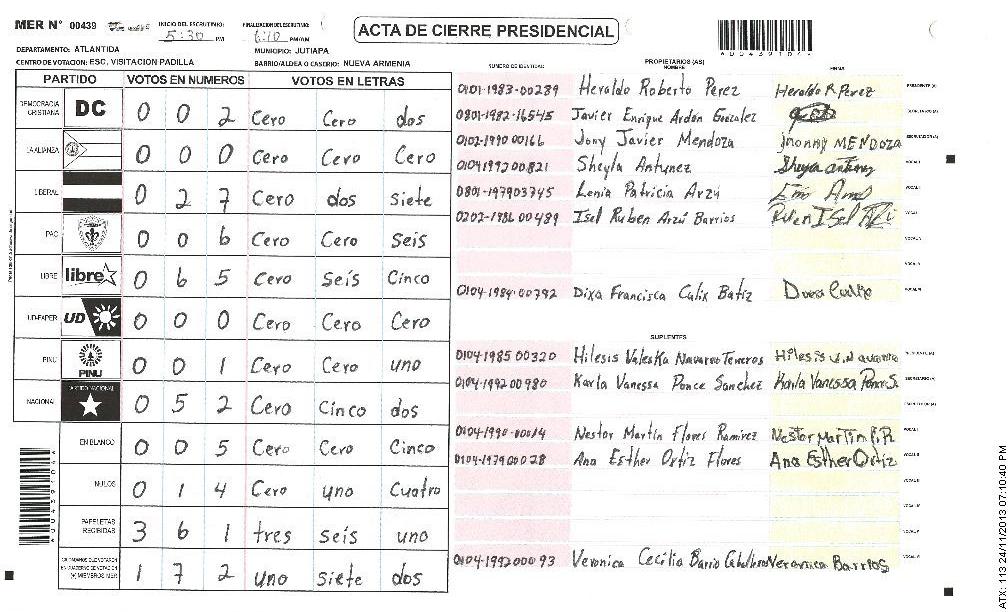 MER N° 00439 INICIO DEL ESCRUTINIO: 5:30 PM FINALIZACION DEL ESCRUTINIO: 6:10 PM/AM
ACTA DE CIERRE PRESIDENCIAL
A004391044
DEPARTAMENTO: ATLANTIDA MUNICIPIO: JUTIAPA
CENTRO DE VOTACION: ESC. VISITACION PADILLA BARRIO/ALDEA O CASERIO: NUEVA ARMENIA
PARTIDO VOTOS EN NUMEROS VOTOS EN LETRAS
DEMOCRACIA CRISTIANA DC 0 0 2 Cero Cero dos
LA ALIANZA 0 0 0 Cero Cero Cero
LIBERAL 0 2 7 Cero dos siete
PAC 0 0 6 Cero Cero seis
LIBRE libre 0 6 5 Cero seis Cinco
UD-FAPER UD 0 0 0 Cero Cero Cero
PINU PINU 0 0 1 Cero Cero uno
NACIONAL PARTIDO NACIONAL 0 5 2 Cero Cinco dos
EN BLANCO 0 0 5 Cero Cero Cinco
NULOS 0 1 4 Cero uno Cuatro
PAPELETAS RECIBIDAS 3 6 1 tres seis uno
CIUDADANOS QUE VOTARON EN CUADERNO DE VOTACION (+) MIEMBROS MER 1 7 2 uno siete dos
PROPIETARIOS (AS)
NUMERO DE IDENTIDAD NOMBRE FIRMA
0101-1983-00289 Heraldo Roberto Perez Heraldo R Perez PRESIDENTE (A)
0801-1982-16545 Javier Enrique Ardon Gonzalez SECRETARIO (A)
0102-1990 00166 Jony Javier Mendoza Jhonny MENDOZA ESCRUTADOR (A)
0104 1992 00821 Sheyla Antunez Sheyla antunez VOCAL I
0801-197903745 Lenia Patricia Arzú
0202-1986 00489 Isel Ruben Arzú Barrios
0104-1984-00792 Dixa Francisca Calix Batiz
SUPLENTES
0104-1985 00320 Hilesis Valeska Navarro Teneros
0104-1992 00980 Karla Vanessa Ponce Sanchez Karla Vanessa Ponce S. SECRETARIO (A)
ESCRUTADOR (A)
0104-1990-00014 Nestor Martin Flores Ramirez Nestor Martin F. R VOCAL I
0104-1979 00028 Ana Esther Ortiz Flores Ana Esther Ortiz
0104-1992000 93 Veronica Cecilia Barrio Caballero Veronica Barrios
A004391044
ATX: 113 24/11/2013 07:10:40 PM